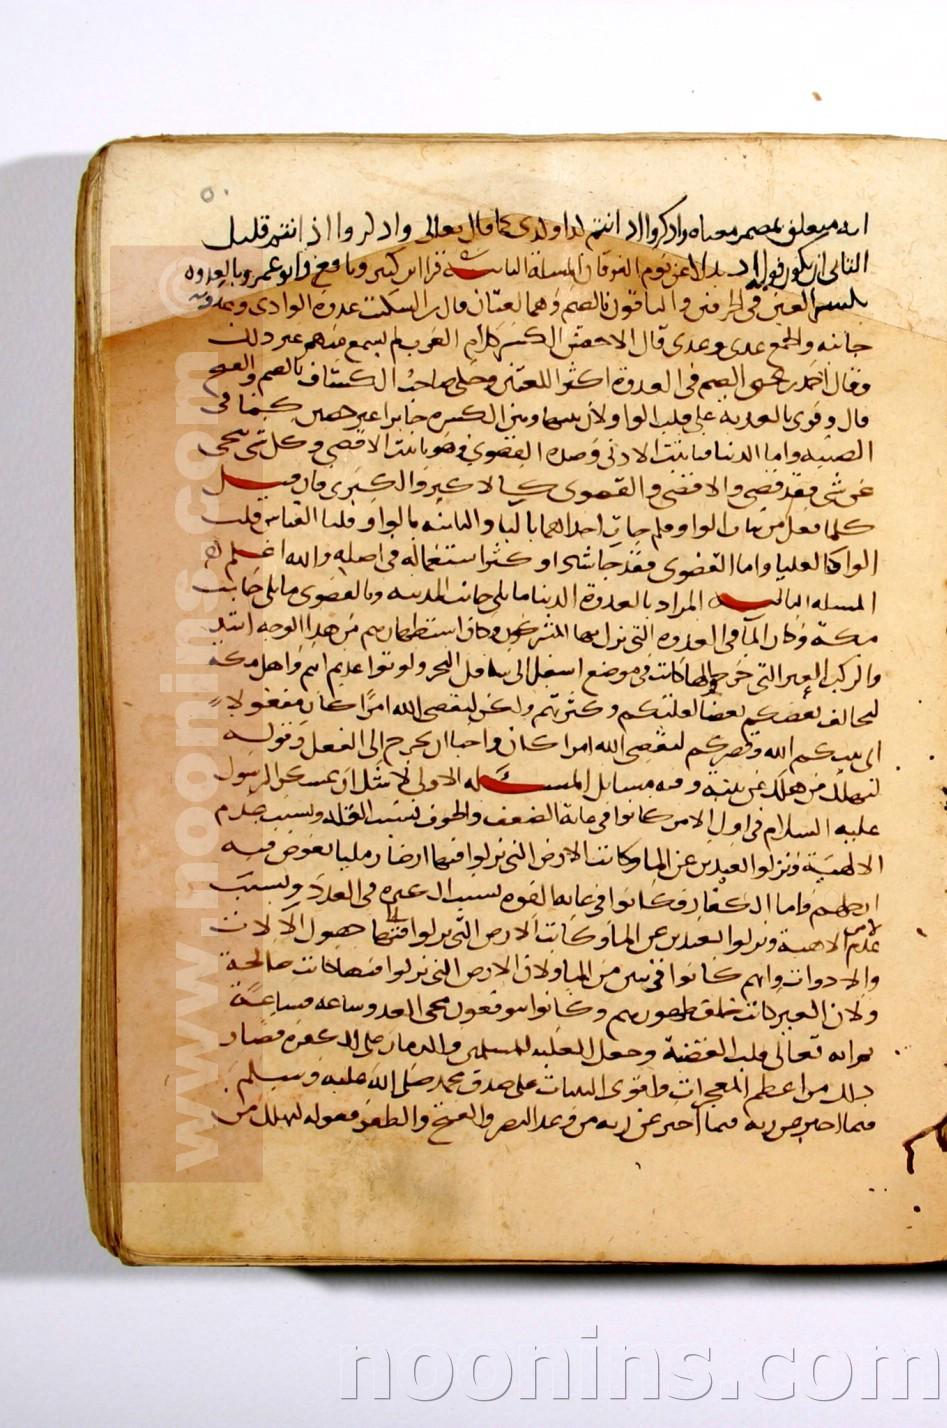 انه متعلق بمضمر معناه واذكروا اذ انتم كذا وكذا كما قال تعالى واذكروا اذ انتم قليل
الثانى ان يكون قوله اذ بدلا عن يوم الفرقان المسلة الثانية قرا ابن كثير ونافع وابو عمرو بالعدوه
بكسر العين فى الحرفين والباقون بالضم وهما لغتان قال ابن السكيت عدوة الوادى وعدوته
جانبه والجمع عدى وعدى قال الاخفش الكسر كلام العرب لم يسمع منهم غير ذلك
وقال احمد بن يحيى الضم فى العدوة اكثر اللغتين وحكى صاحب الكشاف بالضم والفتح
قال وقرى بالعدية على قلب الواو لان بينها وبين الكسره حاجزا غير حصين كما فى
الصبيه واما الدنيا فتانيث الادنى وضده القصوى وهو تانيث الاقصى وكل شى تنحى
عن شى فقد قصى والاقصى والقصوى كالاكبر والكبرى فان قيل
كلتاهما فعلى من بنات الواو فلم جات احداهما باليا والثانيه بالواو قلنا القياس قلب
الواو كالعليا واما القصوى فقد جا شاذا وكثر استعماله فى اصله والله اعلم
المسله الثالثه المراد بالعدوة الدنيا ما يلى جانب المدينه وبالقصوى ما يلى جانب
مكة وكان الما فى العدوه التى نزل بها المشركون وكان استظهارهم من هذا الوجه اشد
والركب العير التى خرجوا لها كانت فى موضع اسفل الى ساحل البحر ولو تواعدتم انتم واهل مكة
لخالف بعضكم بعضا لقلتكم وكثرتهم ولكن ليقضى الله امرا كان مفعولا
اى يثبتكم الله وينصركم ليقضى الله امرا كان واجبا ان يخرج الى الفعل وقوله
ليهلك من هلك عن بينة وفيه مسايل المسله الاولى لا شك ان عسكر الرسول
عليه السلام فى اول الامر كانوا فى غاية الضعف والخوف بسبب القلة وبسبب عدم
الاهبة ونزلوا بعيدين عن الما وكانت الارض التى نزلوا فيها ارضا رمليا يغوص فيه
ارجلهم واما الكفار فكانوا فى غاية القوه بسبب الكثره فى العدد وبسبب
عدم الاهبة ونزلوا بعيدين عن الما وكانت الارض التى نزلوا فيها حصول الالات
والادوات وانهم كانوا قريبين من الما ولان الارض التى نزلوا فيها كانت صالحة
ولان العير كانت خلف ظهورهم وكانوا يتوقعون مجى المدد ساعه فساعة
ثم انه تعالى قلب القضية وجعل الغلبه للمسلمين والدمار على الكفره فصار
ذلك من اعظم المعجزات واقوى البينات على صدق محمد صلى الله عليه وسلم
فيما اخبر عن ربه فيما اخبر عن ربه من وعد النصر والفتح والظفر فقوله ليهلك من
www.noonins.com ©
noonins.com